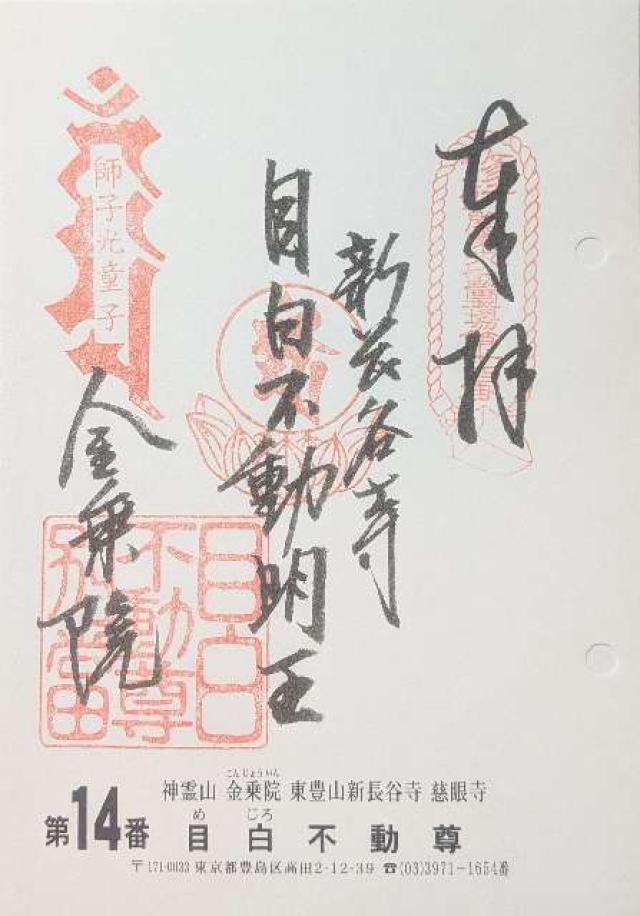 奉拝
新長谷寺
目白不動明王
師子光童子
金乗院
目白
不動尊
別當
神霊山 金乗院 東豊山新長谷寺 慈眼寺
こんじょういん
第14番 目白不動尊
め じろ
〒171-0033 東京都豊島区高田2-12-39 ☎(03)3971-1654番